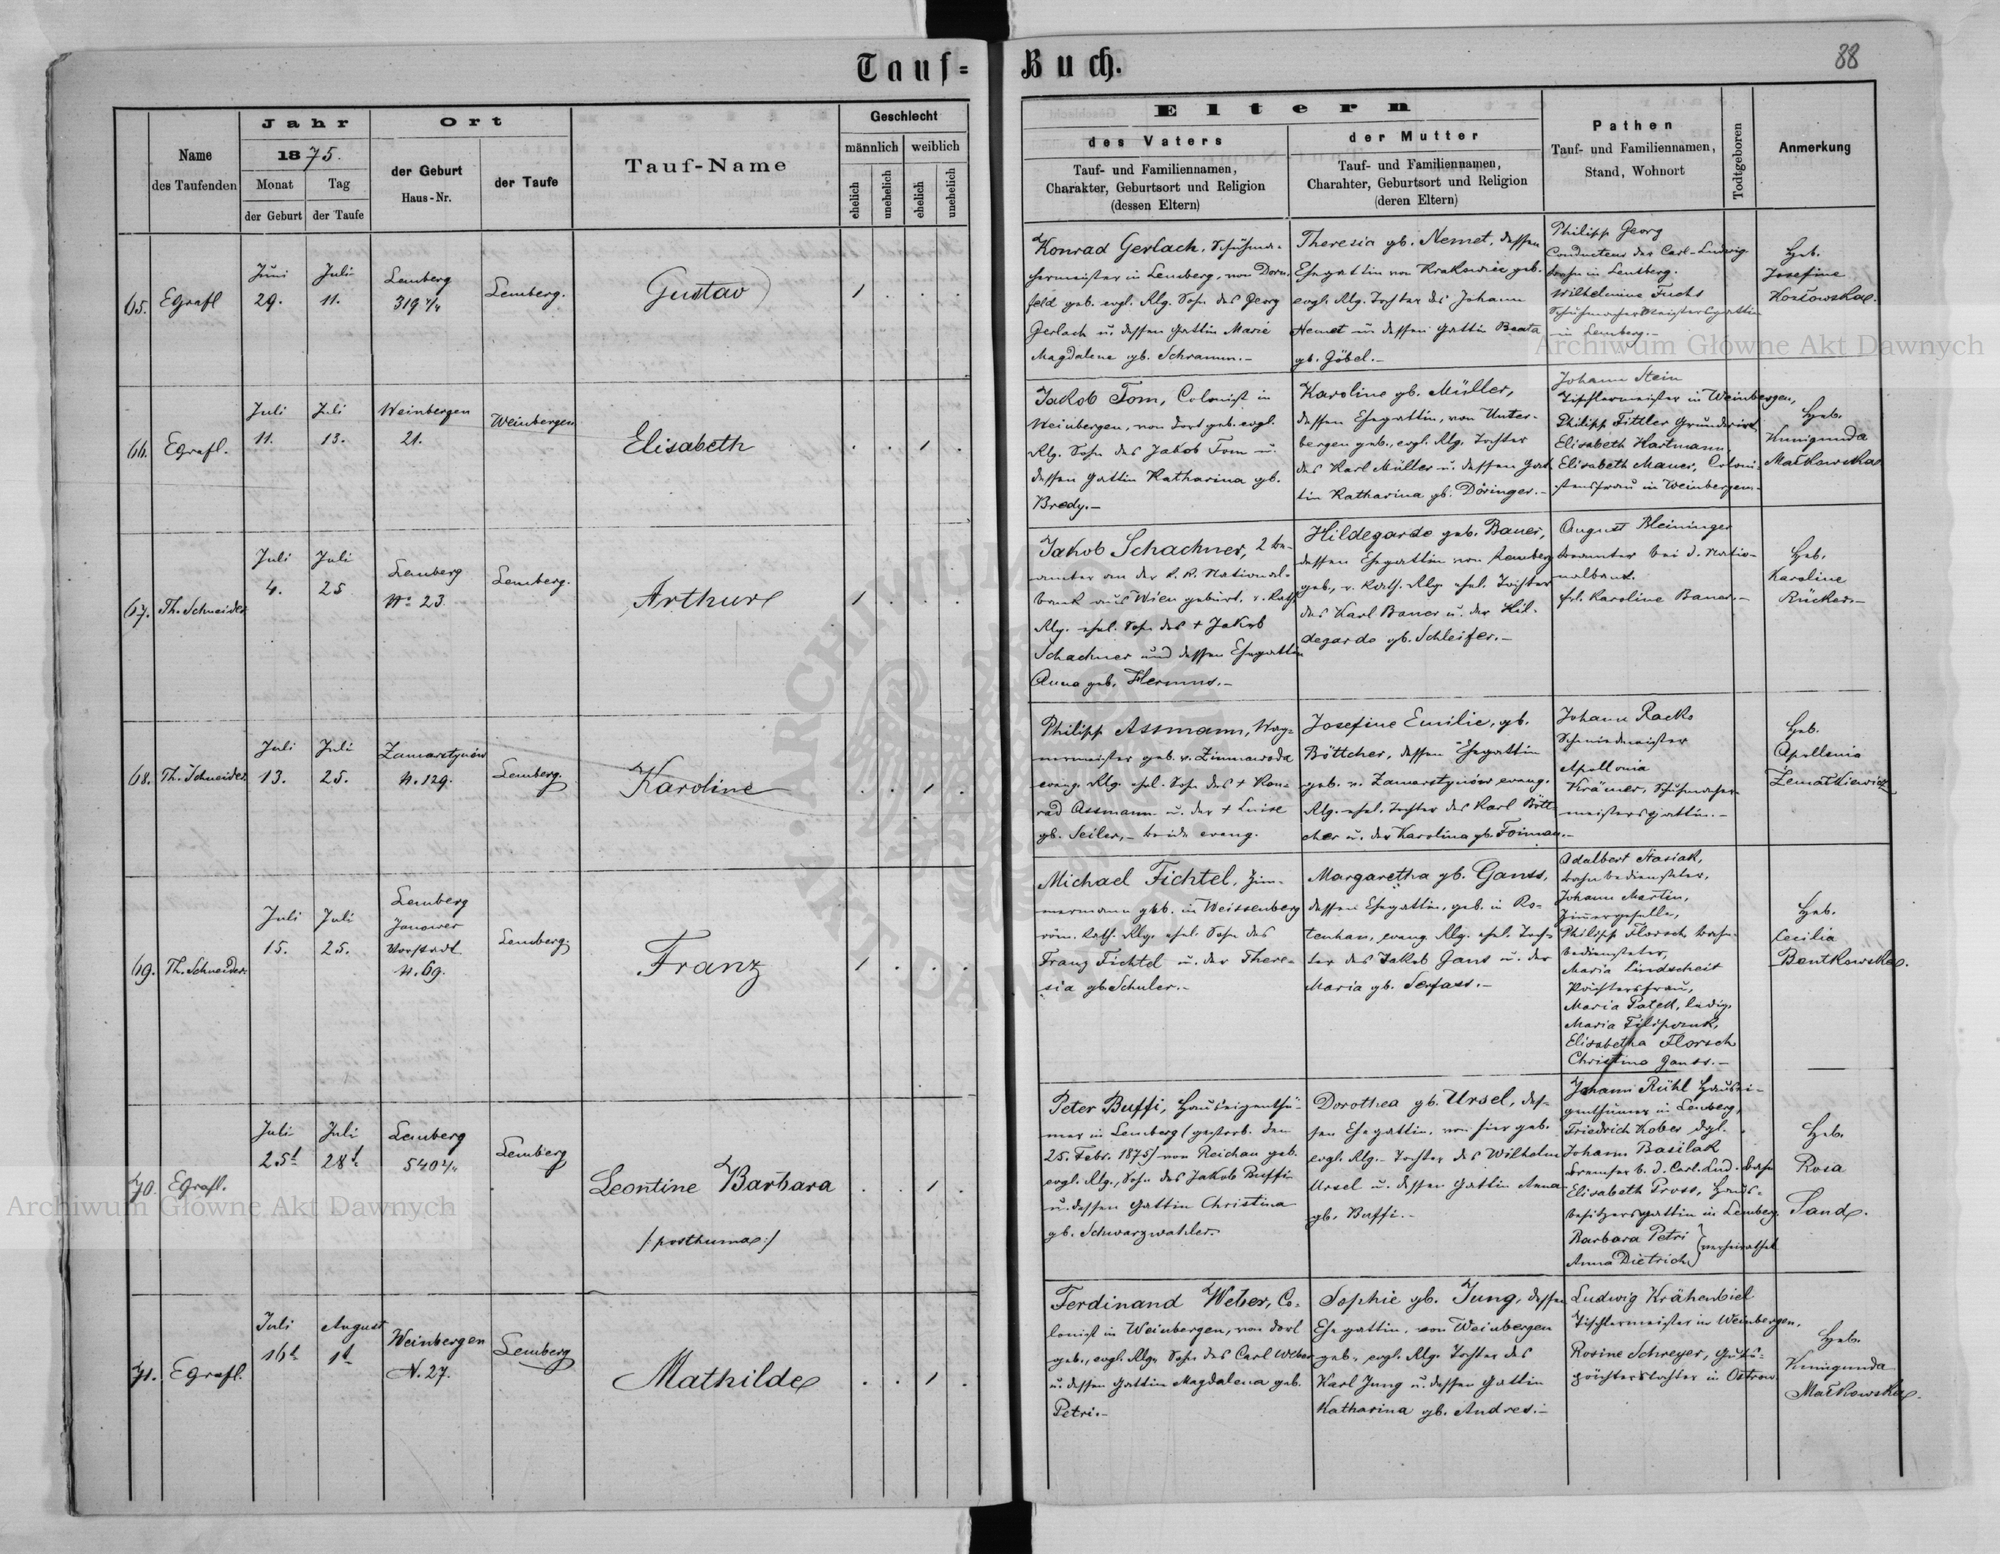 Tauf= Buch.
88
Name
des Taufenden
Jahr
1875.
Monat
der Geburt
Tag
der Taufe
Ort
der Geburt
Haus-Nr.
der Taufe
Tauf-Name
Geschlecht
männlich
weiblich
ehelich
unehelich
ehelich
unehelich
Eltern
des Vaters
Tauf- und Familiennamen,
Charakter, Geburtsort und Religion
(dessen Eltern)
der Mutter
Tauf- und Familiennamen,
Charahter, Geburtsort und Religion
(deren Eltern)
Pathen
Tauf- und Familiennamen,
Stand, Wohnort
Todtgeboren
Anmerkung
65.
Juni
29.
Juli
11.
Lemberg
319 4/4
Lemberg.
Gustav
Konrad Gerlach, Schuhma-
chermeister in Lemberg, von Dorn-
feld geb. evgl. Rlg. Sohn des Georg
Gerlach u. dessen Gattin Marie
Magdalena gb. Schramm.-
Theresia gb. Nemet, dessen
Ehegattin von Krakowiec geb.
evgl. Rlg. Tochter des Johann
Nemet u. dessen Gattin Beata
gb. Göbel.-
Philipp Georg
Conducteur der Carl-Ludwig
bahn in Lemberg.
Wilhelmine Fuchs
Schuhmachermeistersgattin
in Lemberg.-
Heb.
Josefine
Kozłowska.
66.
Juli
11.
Juli
13.
Weinbergen
21.
Weinbergen
Elisabeth
Jakob Tom, Colonist in
Weinbergen, von dort geb. evgl.
Rlg. Sohn des Jakob Tom u.
dessen Gattin Katharina gb.
Bredy.-
Karoline gb. Müller,
dessen Ehegattin, von Unter-
bergen geb., evgl. Rlg. Tochter
des Karl Müller u. dessen Gat-
tin Katharina gb. Döringer.-
Johann Stein
Tischlermeister in Weinbergen,
Philipp Tittler Grundwirt
Elisabeth Hartmann
Elisabeth Mauer, Coloni-
stensfrau in Weinbergen.-
Heb.
Kunigunda
Małkowska
67.
Th. Schneider
Juli
4.
Juli
25
Lemberg
No 23
Lemberg.
Arthur
Jakob Schachner, Be-
amter an der k. k. National-
bank aus Wien gebürt. r. kath.
Rlg. ehel. Sohn des + Jakob
Schachner und dessen Ehegattin
Anna geb.
Hildegarde geb. Bauer,
dessen Ehegattin von Lemberg
geb., r. kath. Rlg. ehel. Tochter
des Karl Bauer u. der Hil-
degarde gb. Schleifer.-
August Bleininger
Beamter bei d. Natio-
nalbank.
Frl. Karoline Bauer.-
Heb.
Karoline
Rücker.-
68.
Th. Schneider
Juli
13.
Juli
25.
Zamarstynów
N. 129.
Lemberg.
Karoline
Philipp Assmann, Wag-
nermeister geb. v. Zimnawoda
evang. Rlg. ehel. Sohn des + Kon-
rad Assmann u. der + Luise
gb. Seiler,- beide evang.
Josefine Emilie, gb.
Böttcher, dessen Ehegattin
geb. v. Zamarstynów evang.
Rlg. ehel. Tochter des Karl Bött-
cher u. der Karolina gb.
Johann Racks
Schmiedmeister
Apollonia
Krämer, Schuhmacher-
meistersgattin.-
Heb.
Apollonia
69.
Th. Schneider
Juli
15.
Juli
25.
Lemberg
Janower
Vorstadt
N. 69.
Lemberg.
Franz
Michael Fichtel, Zim-
mermann geb. in Weissenberg
röm. kath. Rlg. ehel. Sohn des
Franz Fichtel u. der There-
sia gb. Schuler.-
Margaretha gb. Ganss,
dessen Ehegattin, geb. in Ro-
tenhan, evang. Rlg. ehel. Toch-
ter des Jakob Gans u. der
Maria gb. Serfass.-
Adalbert Stasiak,
bahnbediensteter,
Johann Martin,
Zimmergeselle,
Philipp Florsch, bahn-
bediensteter,
Maria Lindscheit
Pächtersfrau,
Maria Patek, ledig.
Maria Filipczuk,
Elisabetha Florsch
Christina Ganss.-
Heb.
Cecilia
Bentkowska.
70.
Juli
25t
Juli
28t
Lemberg
540 4/4
Lemberg
Leontine Barbara
/:posthuma:/
Peter Buffi, Hauseigenthü-
mer in Lemberg (gestorb. den
25. Febr. 1875) von Reichau geb.
evgl. Rlg., Sohn des Jakob Buffi
u. dessen Gattin Christina
gb. Schwarzwalder.
Dorothea gb. Ursel, des-
sen Ehegattin, von hier geb.
evgl. Rlg.- Tochter des Wilhelm
Ursel u. dessen Gattin Anna
gb. Buffi.-
Johann Rühl Hausei-
genthümer in Lemberg,
Friedrich Kober dgl.
Johann Basilak
Bremser b. d. Carl-Lud. Bahn
Elisabeth Pross, Haus-
besitzersgattin in Lemberg.
Barbara Petri
Anna Dietrich } verheirathet
Heb.
Rosa
Sand.
71.
Juli
16t
August
1t
Weinbergen
N. 27.
Lemberg
Mathilde
Ferdinand Weber, Co-
lonist in Weinbergen, von dort
geb., evgl. Rlg. Sohn des Carl Weber
u. dessen Gattin Magdalena geb.
Petri.-
Sophie gb. Jung, dessen
Ehegattin, von Weinbergen
geb., evgl. Rlg. Tochter des
Karl Jung u. dessen Gattin
Katharina gb. Andres.-
Ludwig Krähenbiel
Tischlermeister in Weinbergen,
Rosine Schreyer, Guts-
pächterstochter in Ostrow
Heb.
Kunigunda
Małkowska.
Archiwum Główne Akt Dawnych
Archiwum Główne Akt Dawnych